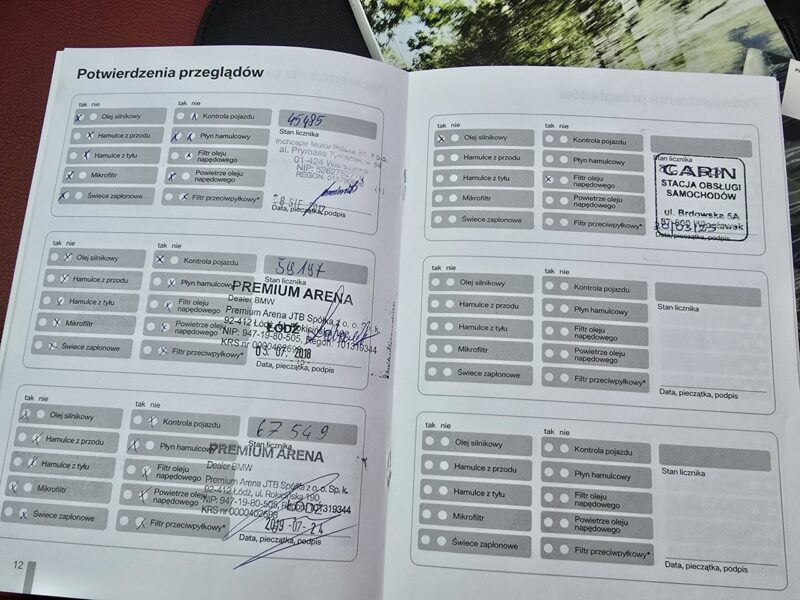 Potwierdzenia przeglądów
tak nie
tak nie
Olej silnikowy
Kontrola pojazdu
45485
Hamulce z przodu
Płyn hamulcowy
Stan licznika
Hamulce z tyłu
Filtr oleju
napędowego
Inchcape Motor Polska
al. Prymasa Tysiąclecia
01-424
NIP:
REGON:
Mikrofiltr
Powietrze oleju
napędowego
Świece zapłonowe
Filtr przeciwpyłkowy*
Data, pieczątka, podpis
tak nie
tak nie
Olej silnikowy
Kontrola pojazdu
Hamulce z przodu
Płyn hamulcowy
Stan licznika
PREMIUM ARENA
Dealer BMW
Premium Arena JTB Spółka z o.o. Sp. k.
92-412 Łódź, ul. Rokicińska 190
NIP: 947-19-80-505, Regon: 101319344
KRS nr
ŁÓDŹ
03. 07. 2018
Hamulce z tyłu
Filtr oleju
napędowego
Mikrofiltr
Powietrze oleju
napędowego
Świece zapłonowe
Filtr przeciwpyłkowy*
Data, pieczątka, podpis
tak nie
tak nie
Olej silnikowy
Kontrola pojazdu
67 549
Hamulce z przodu
Płyn hamulcowy
Stan licznika
PREMIUM ARENA
Dealer BMW
Premium Arena JTB Spółka z o.o. Sp. k.
92-412 Łódź, ul. Rokicińska 190
NIP: 947-19-80-505, Regon: 101319344
KRS nr
ŁÓDŹ
2019 -07- 24
Hamulce z tyłu
Filtr oleju
napędowego
Mikrofiltr
Powietrze oleju
napędowego
Świece zapłonowe
Filtr przeciwpyłkowy*
Data, pieczątka, podpis
12
tak nie
tak nie
Olej silnikowy
Kontrola pojazdu
Hamulce z przodu
Płyn hamulcowy
Stan licznika
CARIN
STACJA OBSŁUGI
SAMOCHODÓW
ul. Brdowska 5A
Hamulce z tyłu
Filtr oleju
napędowego
Mikrofiltr
Powietrze oleju
napędowego
Świece zapłonowe
Filtr przeciwpyłkowy*
Data, pieczątka, podpis
tak nie
tak nie
Olej silnikowy
Kontrola pojazdu
Hamulce z przodu
Płyn hamulcowy
Stan licznika
Hamulce z tyłu
Filtr oleju
napędowego
Mikrofiltr
Powietrze oleju
napędowego
Świece zapłonowe
Filtr przeciwpyłkowy*
Data, pieczątka, podpis
tak nie
tak nie
Olej silnikowy
Kontrola pojazdu
Hamulce z przodu
Płyn hamulcowy
Stan licznika
Hamulce z tyłu
Filtr oleju
napędowego
Mikrofiltr
Powietrze oleju
napędowego
Świece zapłonowe
Filtr przeciwpyłkowy*
Data, pieczątka, podpis